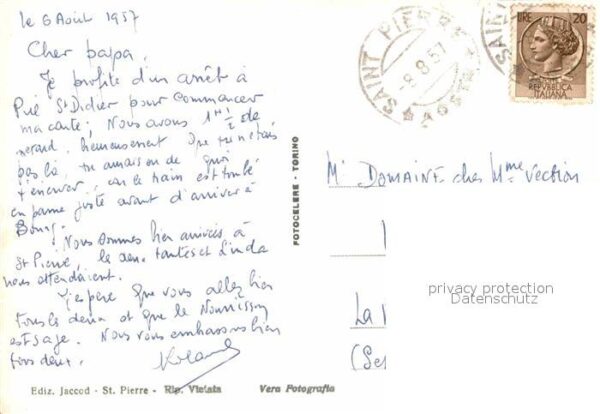 le 6 Août 1957
Cher papa,
Je profite d'un arrêt à
Pré St Didier pour commencer
ma carte; Nous avons 1 H 1/2 de
retard. Heureusement que tu n'étais
pas là, tu aurais eu de quoi
t'énerver, car le train est tombé
en panne juste avant d'arriver à
Bourg.
Nous sommes bien arrivés à
St Pierre, les tantes et Linda
nous attendaient.
J'espère que vous allez bien
tous les deux et que le Nourrisson
est sage. Nous vous embrassons bien
tous deux.
Roland
Ediz. Jaccod - St. Pierre - Rip. Vietata
Vera Fotografia
FOTOCELERE - TORINO
SAINT PIERRE
8.8.57
AOSTA
SAINT PIE
LIRE 20
REPVBBLICA
ITALIANA
Mr DOMAINE chez Mme Vection
La
(Se
privacy protection
Datenschutz